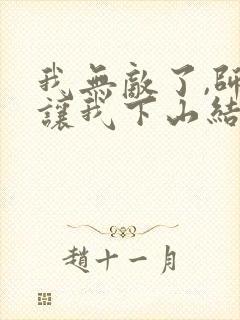 我無敵了,師
讓我下山結
趙十一月